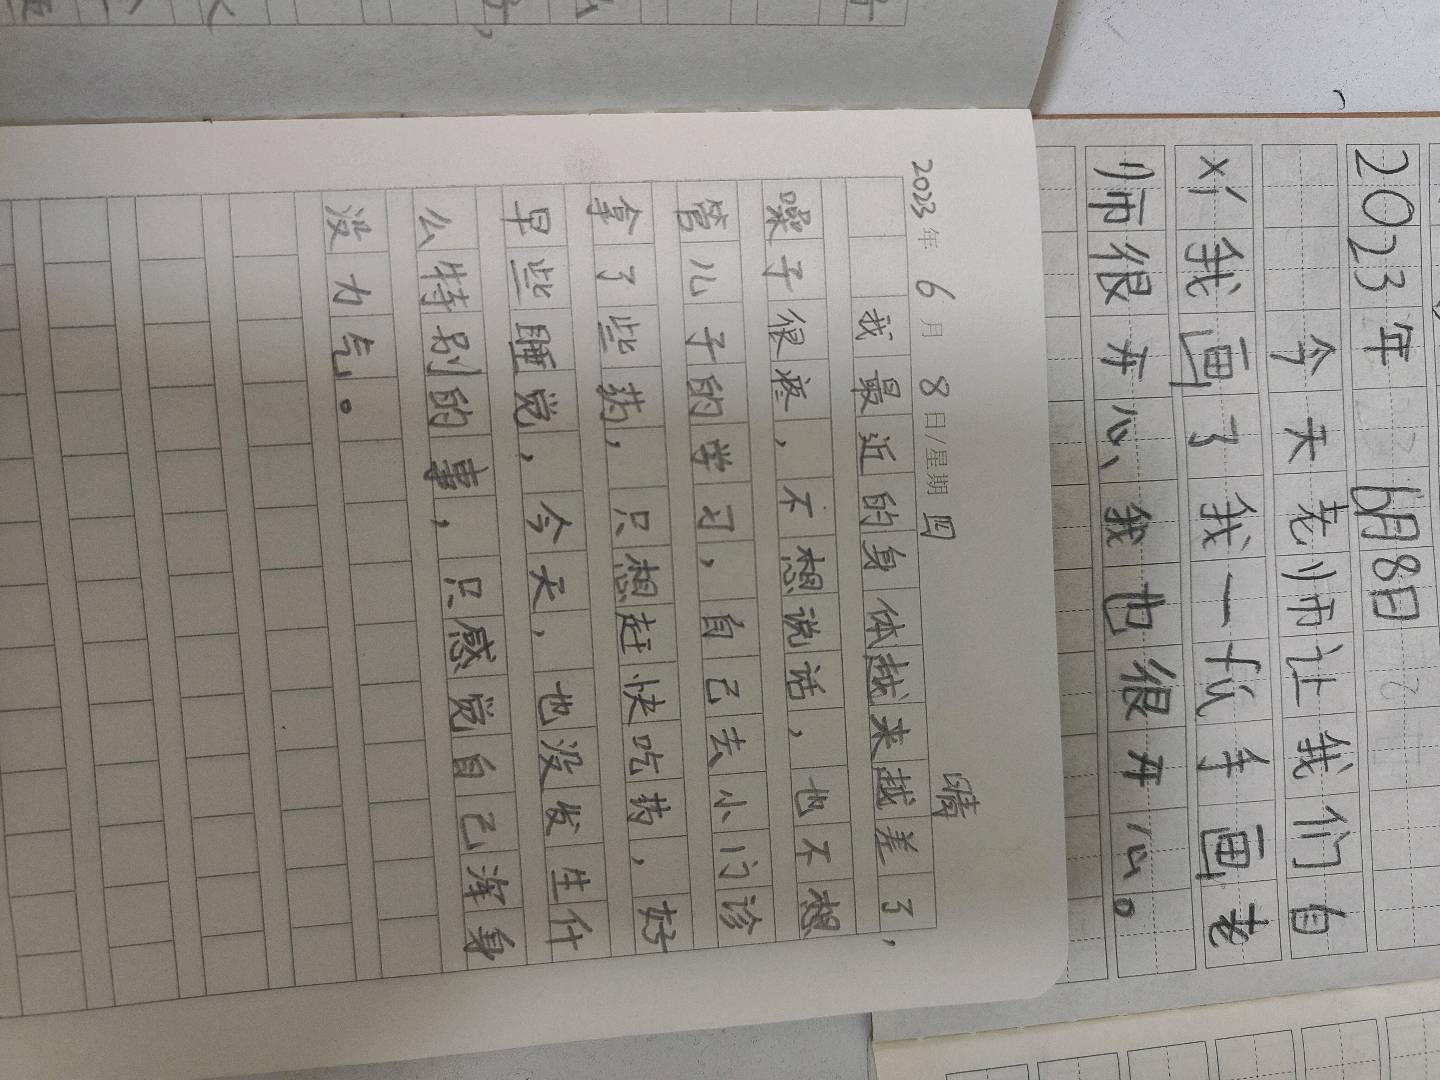 2023年6月8日
今天老师让我们自
习我画了我一代手画老
师很开心、我也很开心。
2023年 6月 8日/星期四 晴
我最近的身体越来越差了，
嗓子很疼，不想说话，也不想
管儿子的学习，自己去小门诊
拿了些药，只想赶快吃药，好
早些睡觉，今天，也没发生什
么特别的事，只感觉自己浑身
没力气。